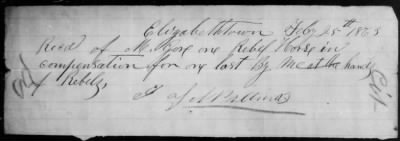 Elizabethtown Feby 25th 1865
Recd of M. one Rebel Horse in
compensation for one lost by me at the hands
of Rebels,